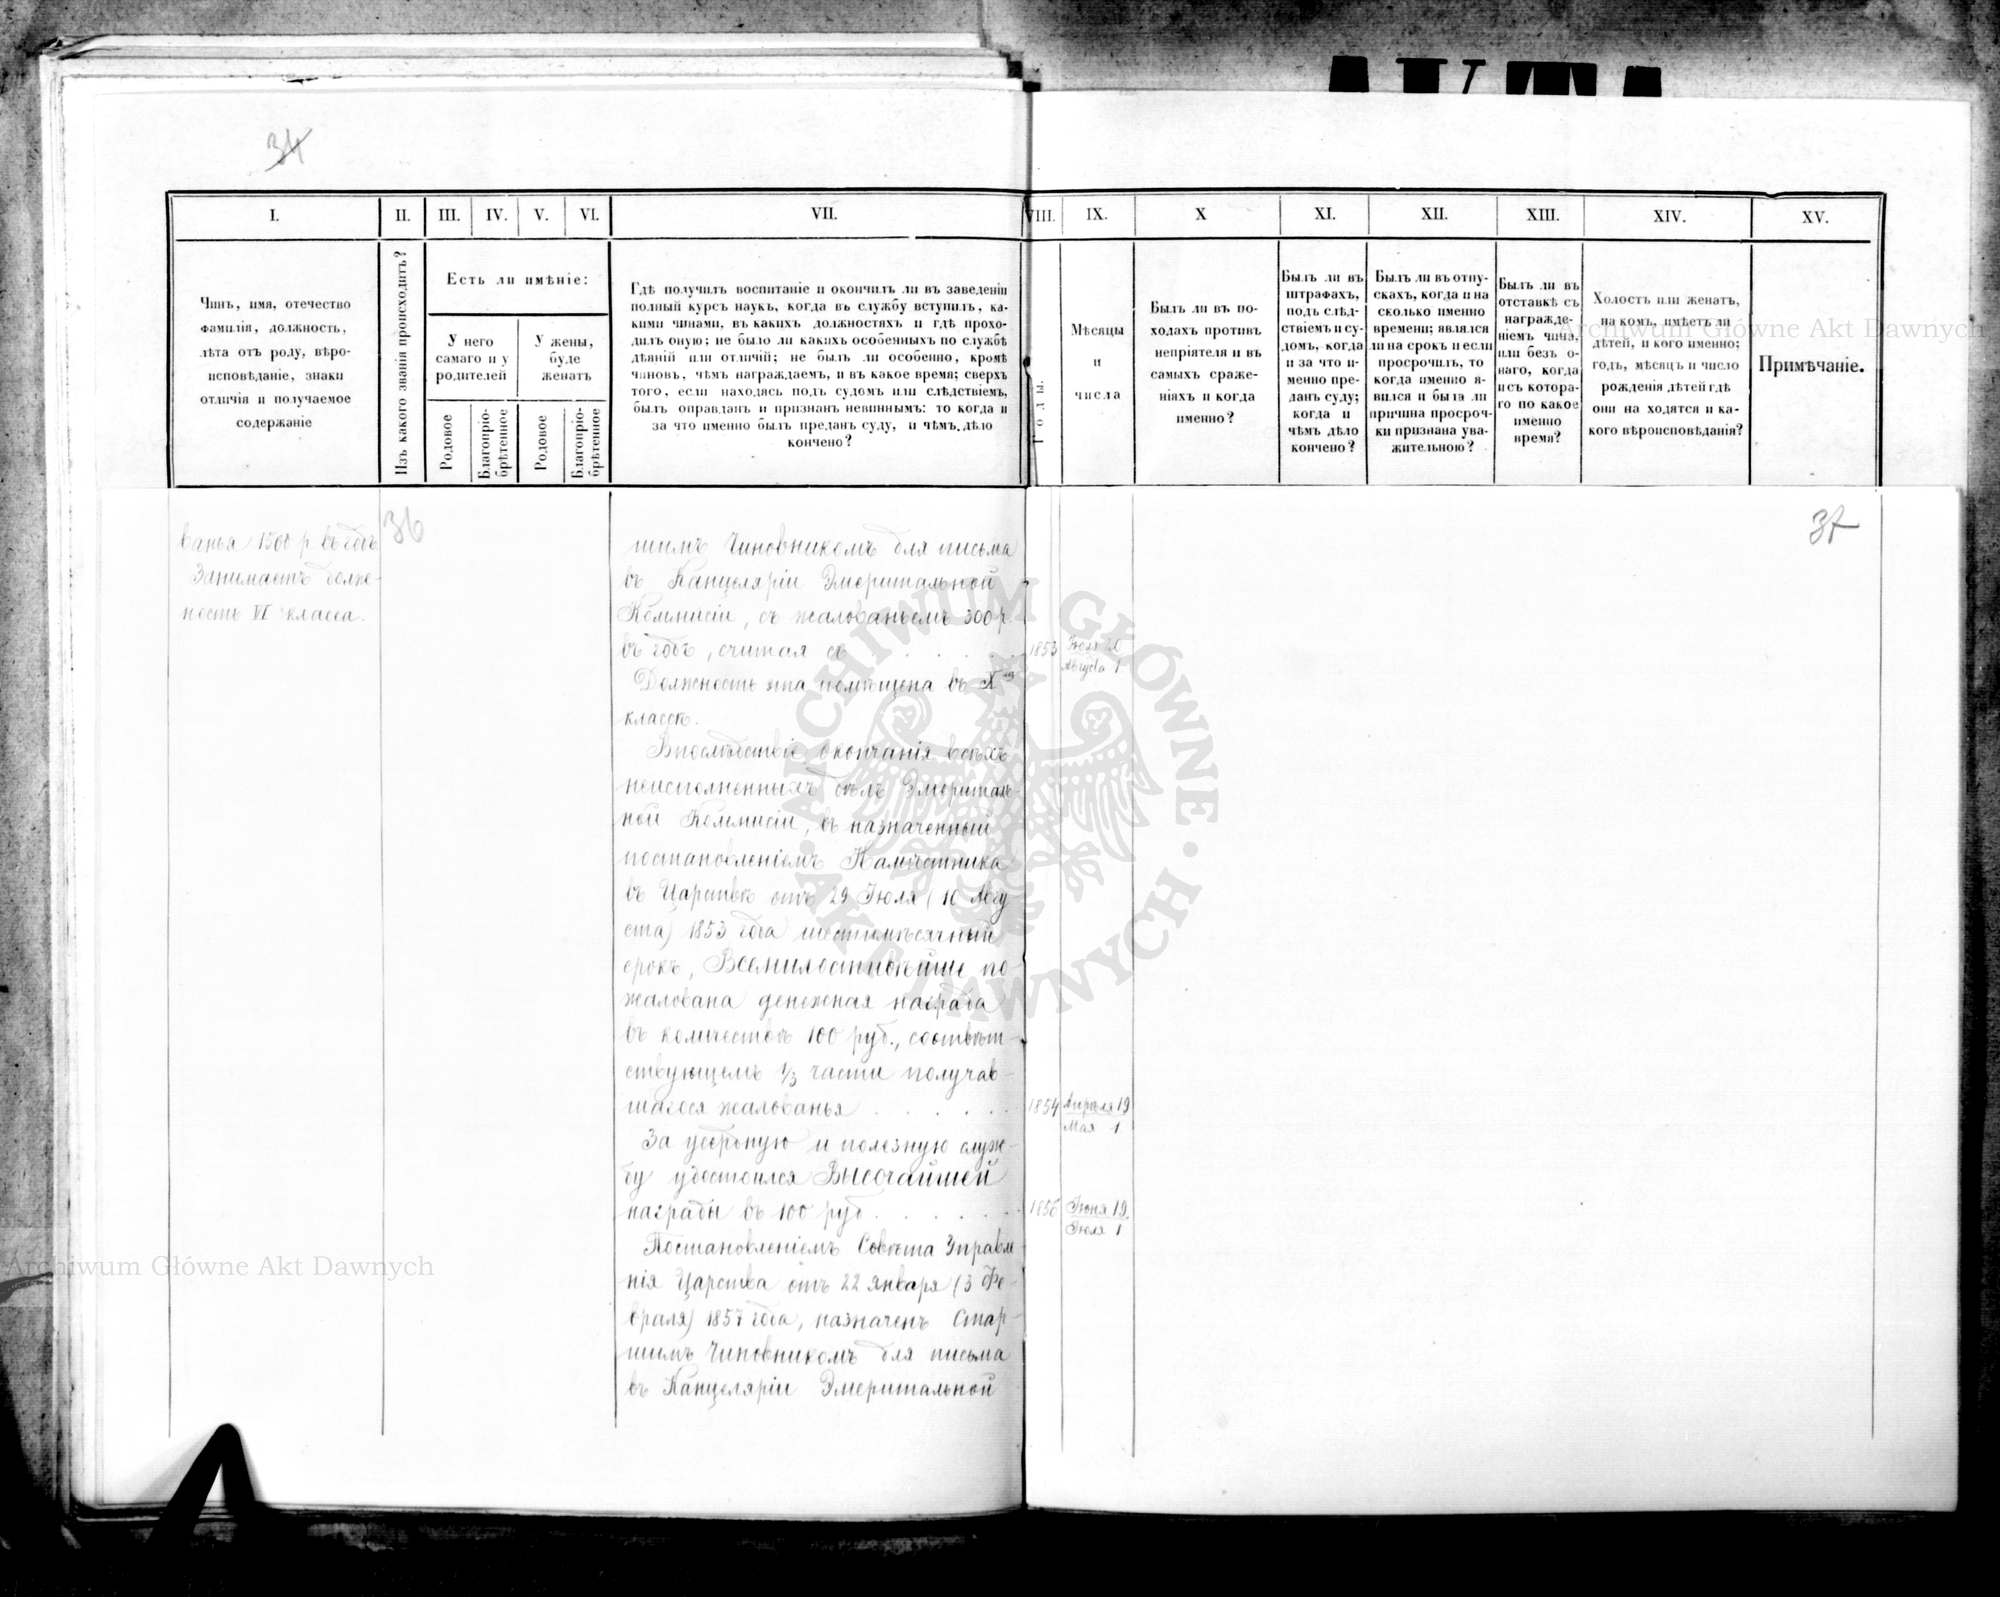 34
I.
II.
III.
IV.
V.
VI.
VII.
VIII.
IX.
X
XI.
XII.
XIII.
XIV.
XV.
Чинъ, имя, отечество
фамилія, должность,
лѣта отъ роду, вѣро-
исповѣданіе, знаки
отличія и получаемое
содержаніе
Изъ какого званія происходитъ?
Есть ли имѣніе:
У него
самаго и у
родителей
У жены,
буде
женатъ
Родовое
Благопріо-
брѣтенное
Родовое
Благопріо-
брѣтенное
Гдѣ получилъ воспитаніе и окончилъ ли въ заведеніи
полный курсъ наукъ, когда въ службу вступилъ, ка-
кими чинами, въ какихъ должностяхъ и гдѣ прохо-
дилъ оную; не было ли какихъ особенныхъ по службѣ
дѣяній или отличій; не былъ ли особенно, кромѣ
чиновъ, чѣмъ награждаемъ, и въ какое время; сверхъ
того, если находясь подъ судомъ или слѣдствіемъ,
былъ оправданъ и признанъ невиннымъ: то когда и
за что именно былъ преданъ суду, и чѣмъ дѣло
кончено?
Годы.
Мѣсяцы
и
числа
Былъ ли въ по-
ходахъ противъ
непріятеля и въ
самыхъ сраже-
ніяхъ и когда
именно?
Былъ ли въ
штрафахъ,
подъ слѣд-
ствіемъ и су-
домъ, когда
и за что и-
менно пре-
данъ суду;
когда и
чѣмъ дѣло
кончено?
Былъ ли въ отпу-
скахъ, когда и на
сколько именно
времени; являлся
ли на срокъ и если
просрочилъ, то
когда именно я-
вился и была ли
причина просроч-
ки признана ува-
жительною?
Былъ ли въ
отставкѣ съ
награжде-
ніемъ чина,
или безъ о-
наго, когда
и съ котора-
го по какое
именно
время?
Холостъ или женатъ,
на комъ, имѣетъ ли
дѣтей, и кого именно;
годъ, мѣсяцъ и число
рожденія дѣтей гдѣ
они на ходятся и ка-
кого вѣроисповѣданія?
Примѣчаніе.
Archiwum Główne Akt Dawnych
36
37
ванья 1500 р. въ годъ
Занимаетъ долж-
ность VI класса.
шимъ Чиновникомъ для письма
въ Канцеляріи Эмеритальной
Коммисіи, съ жалованьемъ 300 р.
въ годъ, считая съ . . . . .
1853
Августа 1
Должность эта помѣщена въ X
классѣ.
Впослѣдствіе окончанія всѣхъ
неисполненныхъ дѣлъ Эмериталь-
ной Коммисіи, въ назначенный
постановленіемъ Намѣстника
въ Царствѣ отъ 29 Іюля (10 Авгу-
ста) 1853 года шестимѣсячный
срокъ, Всемилостивѣйше по-
жалована денежная награда
въ количествѣ 100 руб., соотвѣт-
ствующемъ 1/3 части получав-
шагося жалованья . . . . .
1854
Апрѣля 19
Мая 1
За усердную и полезную служ-
бу удостоился Высочайшей
награды въ 100 руб. . . . . .
1856
Іюня 19
Іюля 1
Постановленіемъ Совѣта Управле
нія Царства отъ 22 Января (3 Фе-
враля) 1857 года, назначенъ Стар-
шимъ Чиновникомъ для письма
въ Канцеляріи Эмеритальной
ARCHIWUM GŁÓWNE AKT DAWNYCH
Archiwum Główne Akt Dawnych